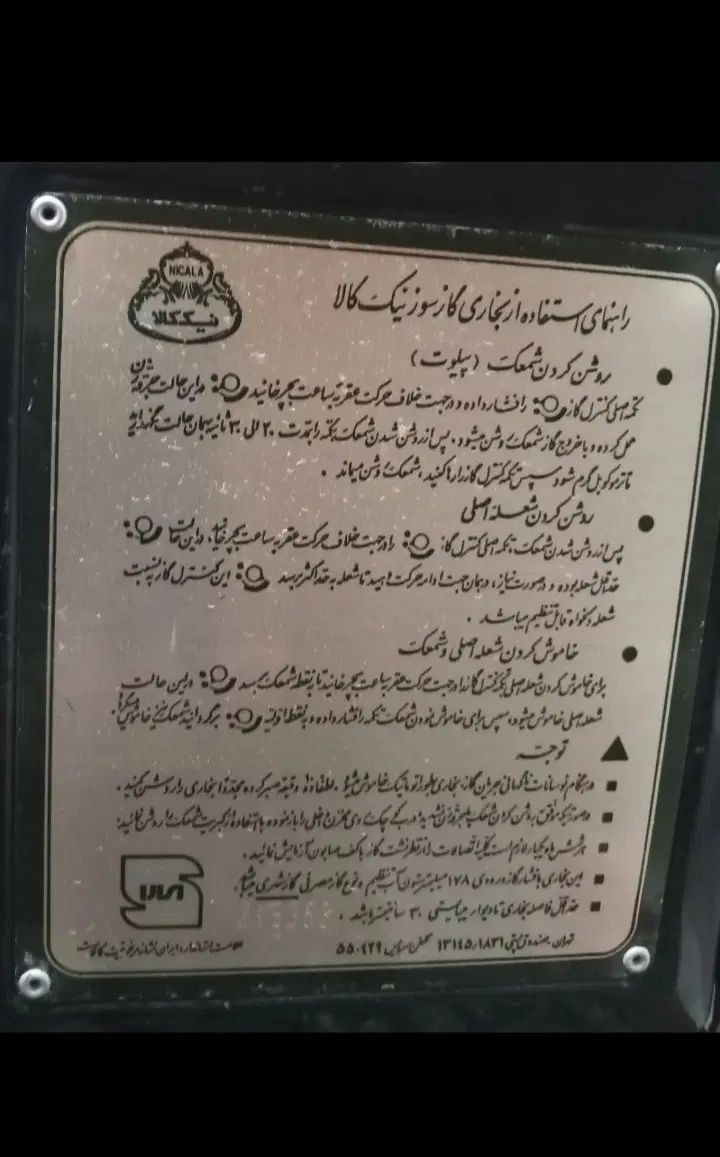 NICALA
نیک کالا
راهنمای استفاده از بخاری گازسوز نیک کالا
روشن کردن شمعک (پیلوت)
تکمه اصلی کنترل گاز را فشار داده و در جهت خلاف حرکت عقربه ساعت بچرخانید در این حالت جرقه زن
عمل کرده و با خروج گاز شمعک روشن میشود، پس از روشن شدن شمعک تکمه را بمدت ۲۰ الی ۳۰ ثانیه بهمان حالت نگهدارید
تا ترموکوبل گرم شود و سپس تکمه کنترل گاز را رها کنید، شمعک روشن میماند.
روشن کردن شعله اصلی
پس از روشن شدن شمعک، تکمه اصلی کنترل گاز را در جهت خلاف حرکت عقربه ساعت بچرخانید، در این حالت
حداقل شعله بوده و در صورت نیاز، در همان جهت ادامه حرکت دهید تا شعله به حداکثر برسد این کنترل گاز به نسبت
شعله دلخواه قابل تنظیم میباشد.
خاموش کردن شعله اصلی و شمعک
برای خاموش کردن شعله اصلی تکمه کنترل گاز را در جهت حرکت عقربه ساعت بچرخانید تا به نقطه شمعک برسد در این حالت
شعله اصلی خاموش میشود، سپس برای خاموش نمودن شمعک تکمه را فشار داده و به نقطه اولیه برگردانید شمعک نیز خاموش میگردد.
توجه
در هنگام نوسانات ناگهانی جریان گاز، بخاری بطور اتوماتیک خاموش میشود. لطفاً ۱۵ دقیقه صبر کرده مجدداً بخاری را روشن کنید.
در صورتیکه موفق به روشن کردن شمعک بوسیله جرقه زن نشدید درب کوچک روی مخزن داخلی را باز نموده با استفاده از کبریت شمعک را روشن نمائید.
هر شش ماه یکبار لازم است کلیه اتصالات را از نظر نشت گاز با کف صابون آزمایش نمائید.
این بخاری با فشار گاز ورودی ۱۷۸ میلیمتر ستون آب تنظیم و نوع گاز مصرفی گاز شهری میباشد.
حداقل فاصله بخاری تا دیوار میبایستی ۳۰ سانتیمتر باشد.
تهران، صندوق پستی ۱۳۱۴۵/۱۸۳۱ تلفن سرویس ۵۵۰۴۲۹
علامت استاندارد ایران نشانه مرغوبیت کالاست